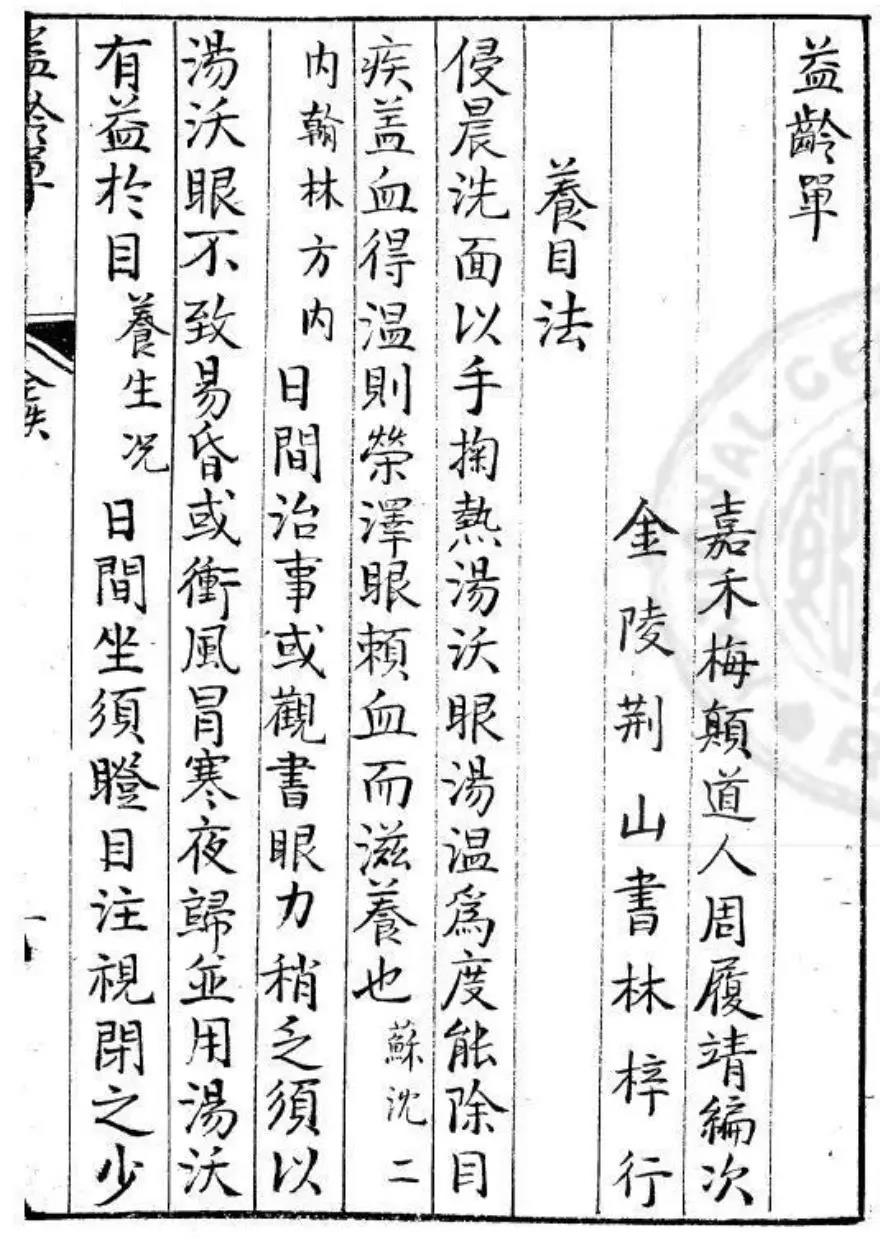 益齡單
嘉禾梅顛道人周履靖編次
金陵荆山書林梓行
養目法
侵晨洗面以手掬熱湯沃眼湯温爲度能除目
疾盖血得温則榮澤眼頼血而滋養也蘇沈二
内翰林方内日間治事或觀書眼力稍乏須以
湯沃眼不致易昏或衝風冒寒夜歸並用湯沃
有益於目養生况日間坐須瞪目注視閉之少
益齡單
一